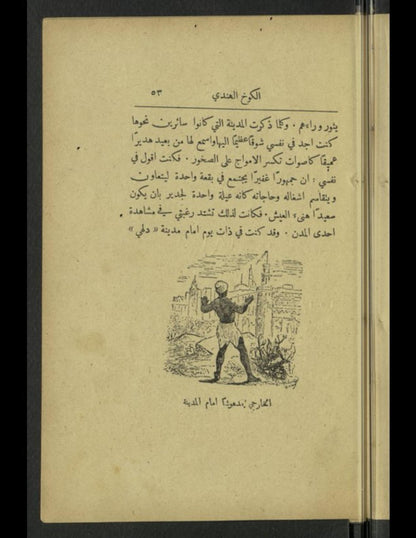 الكوخ الهندي ٥٣
يثور وراءهم . وكلما ذكرت المدينة التي كانوا سائرين نحوها
كنت اجد في نفسي شوقًا عظيمًا اليها واسمع لها من بعيد هديرًا
عميقًا كاصوات تكسر الامواج على الصخور . فكنت اقول في
نفسي : ان جمهورًا غفيرًا يجتمع في بقعة واحدة ليتعاون
ويتقاسم اشغاله وحاجاته كانه عيلة واحدة لجدير بان يكون
سعيدًا هنيء العيش . فكانت لذلك تشتد رغبتي في مشاهدة
احدى المدن . وقد كنت في ذات يوم امام مدينة « دلهي »
الخارجي مدهوشًا امام المدينة